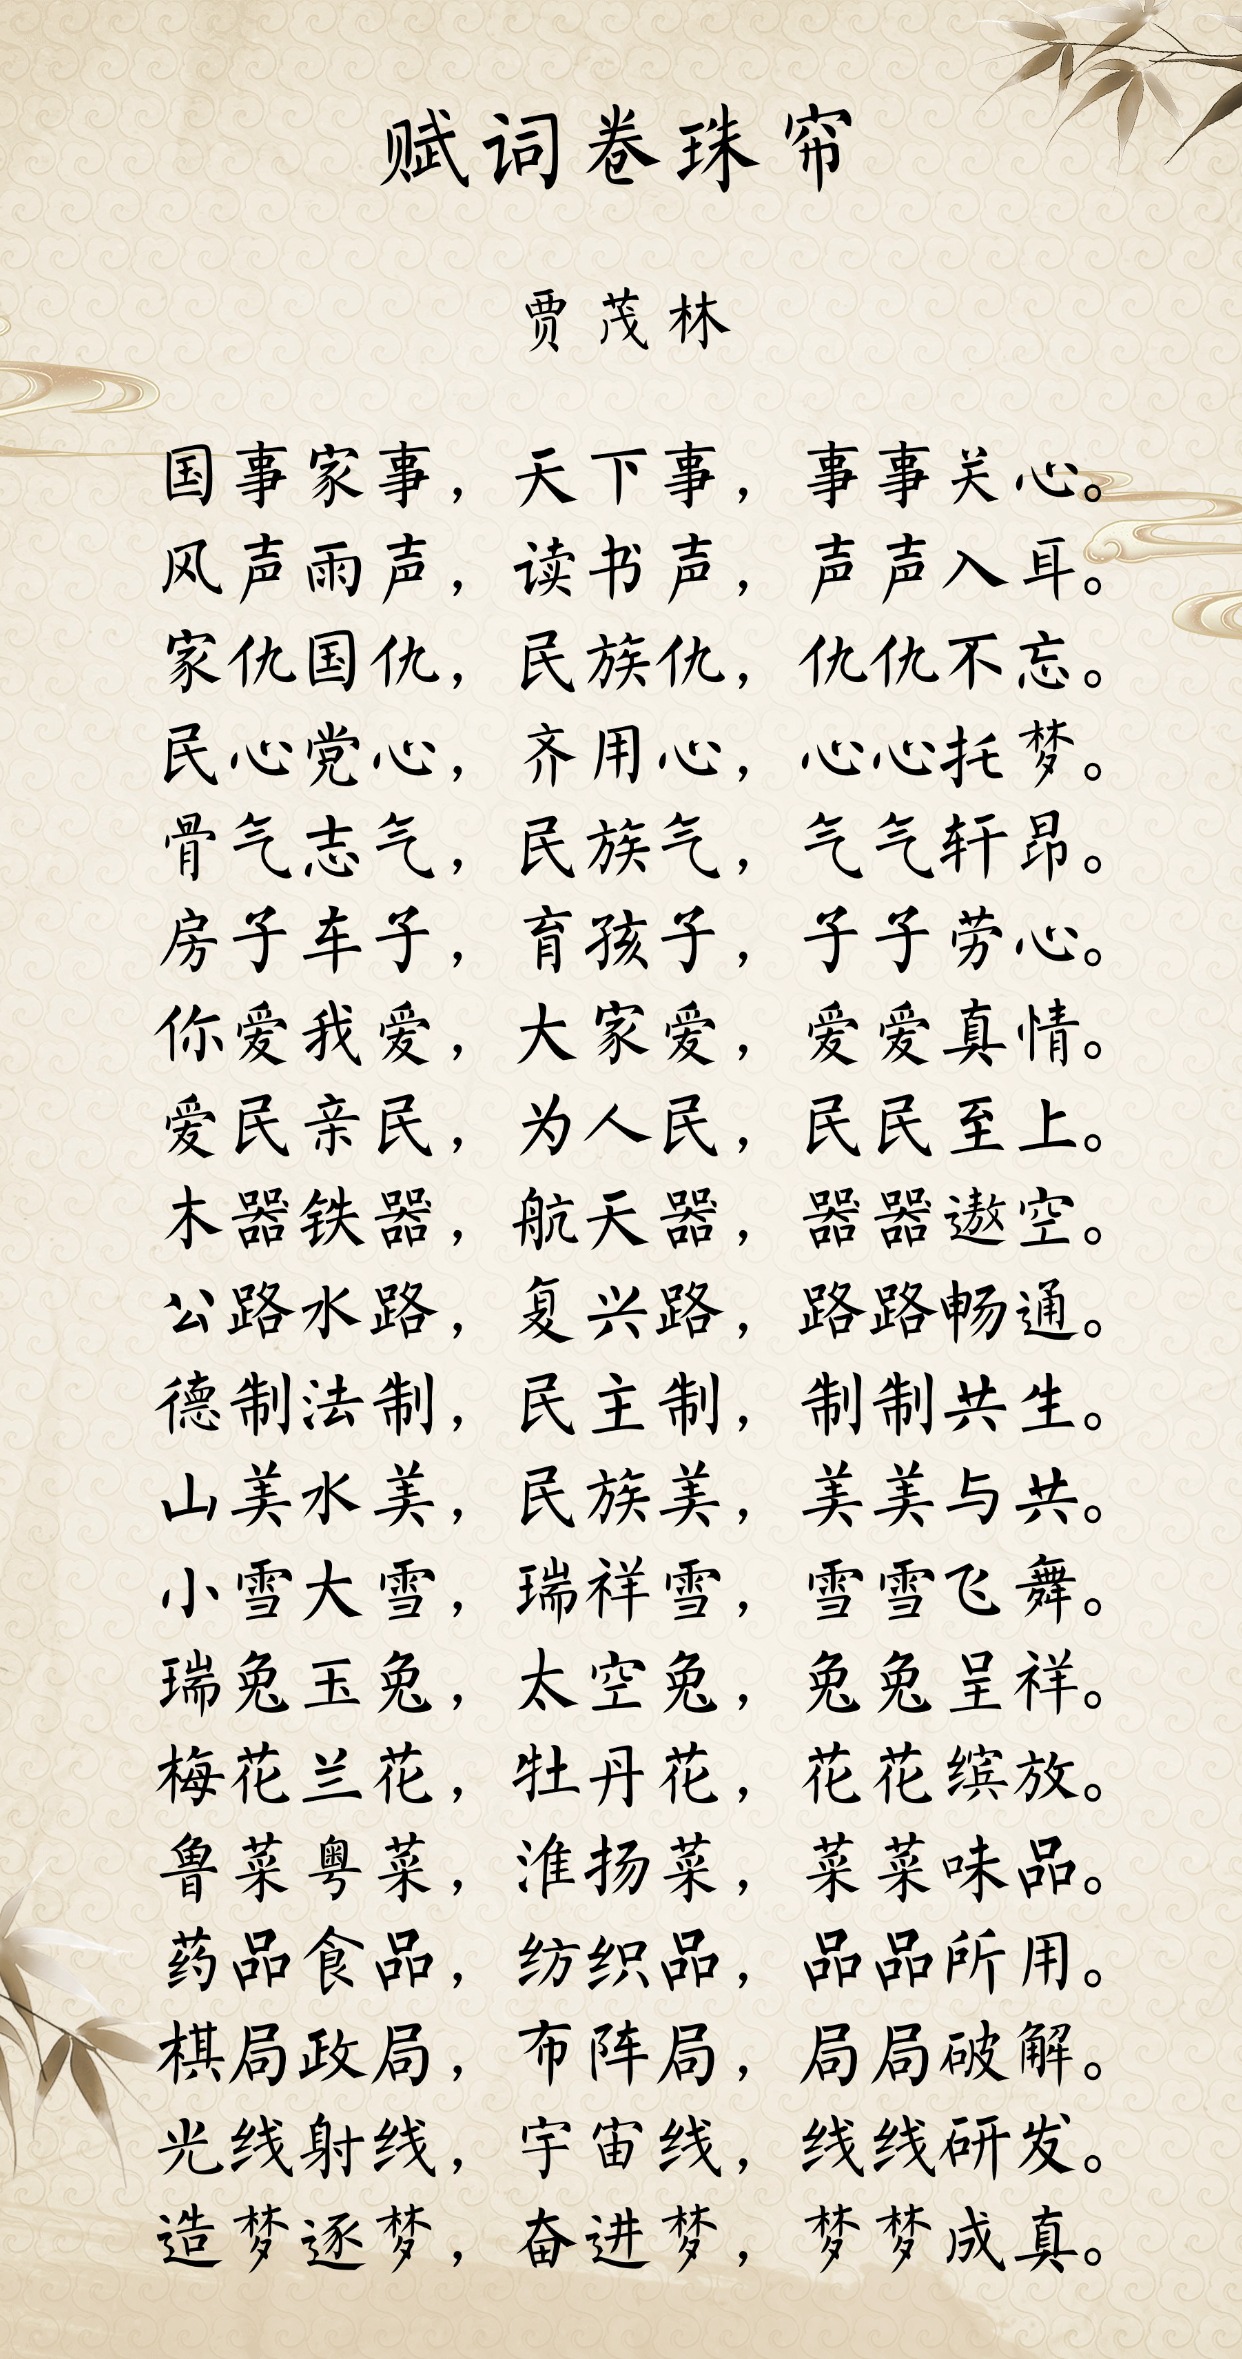 赋词卷珠帘
贾茂林
国事家事，天下事，事事关心。
风声雨声，读书声，声声入耳。
家仇国仇，民族仇，仇仇不忘。
民心党心，齐用心，心心托梦。
骨气志气，民族气，气气轩昂。
房子车子，育孩子，子子劳心。
你爱我爱，大家爱，爱爱真情。
爱民亲民，为人民，民民至上。
木器铁器，航天器，器器遨空。
公路水路，复兴路，路路畅通。
德制法制，民主制，制制共生。
山美水美，民族美，美美与共。
小雪大雪，瑞祥雪，雪雪飞舞。
瑞兔玉兔，太空兔，兔兔呈祥。
梅花兰花，牡丹花，花花缤放。
鲁菜粤菜，淮扬菜，菜菜味品。
药品食品，纺织品，品品所用。
棋局政局，布阵局，局局破解。
光线射线，宇宙线，线线研发。
造梦逐梦，奋进梦，梦梦成真。